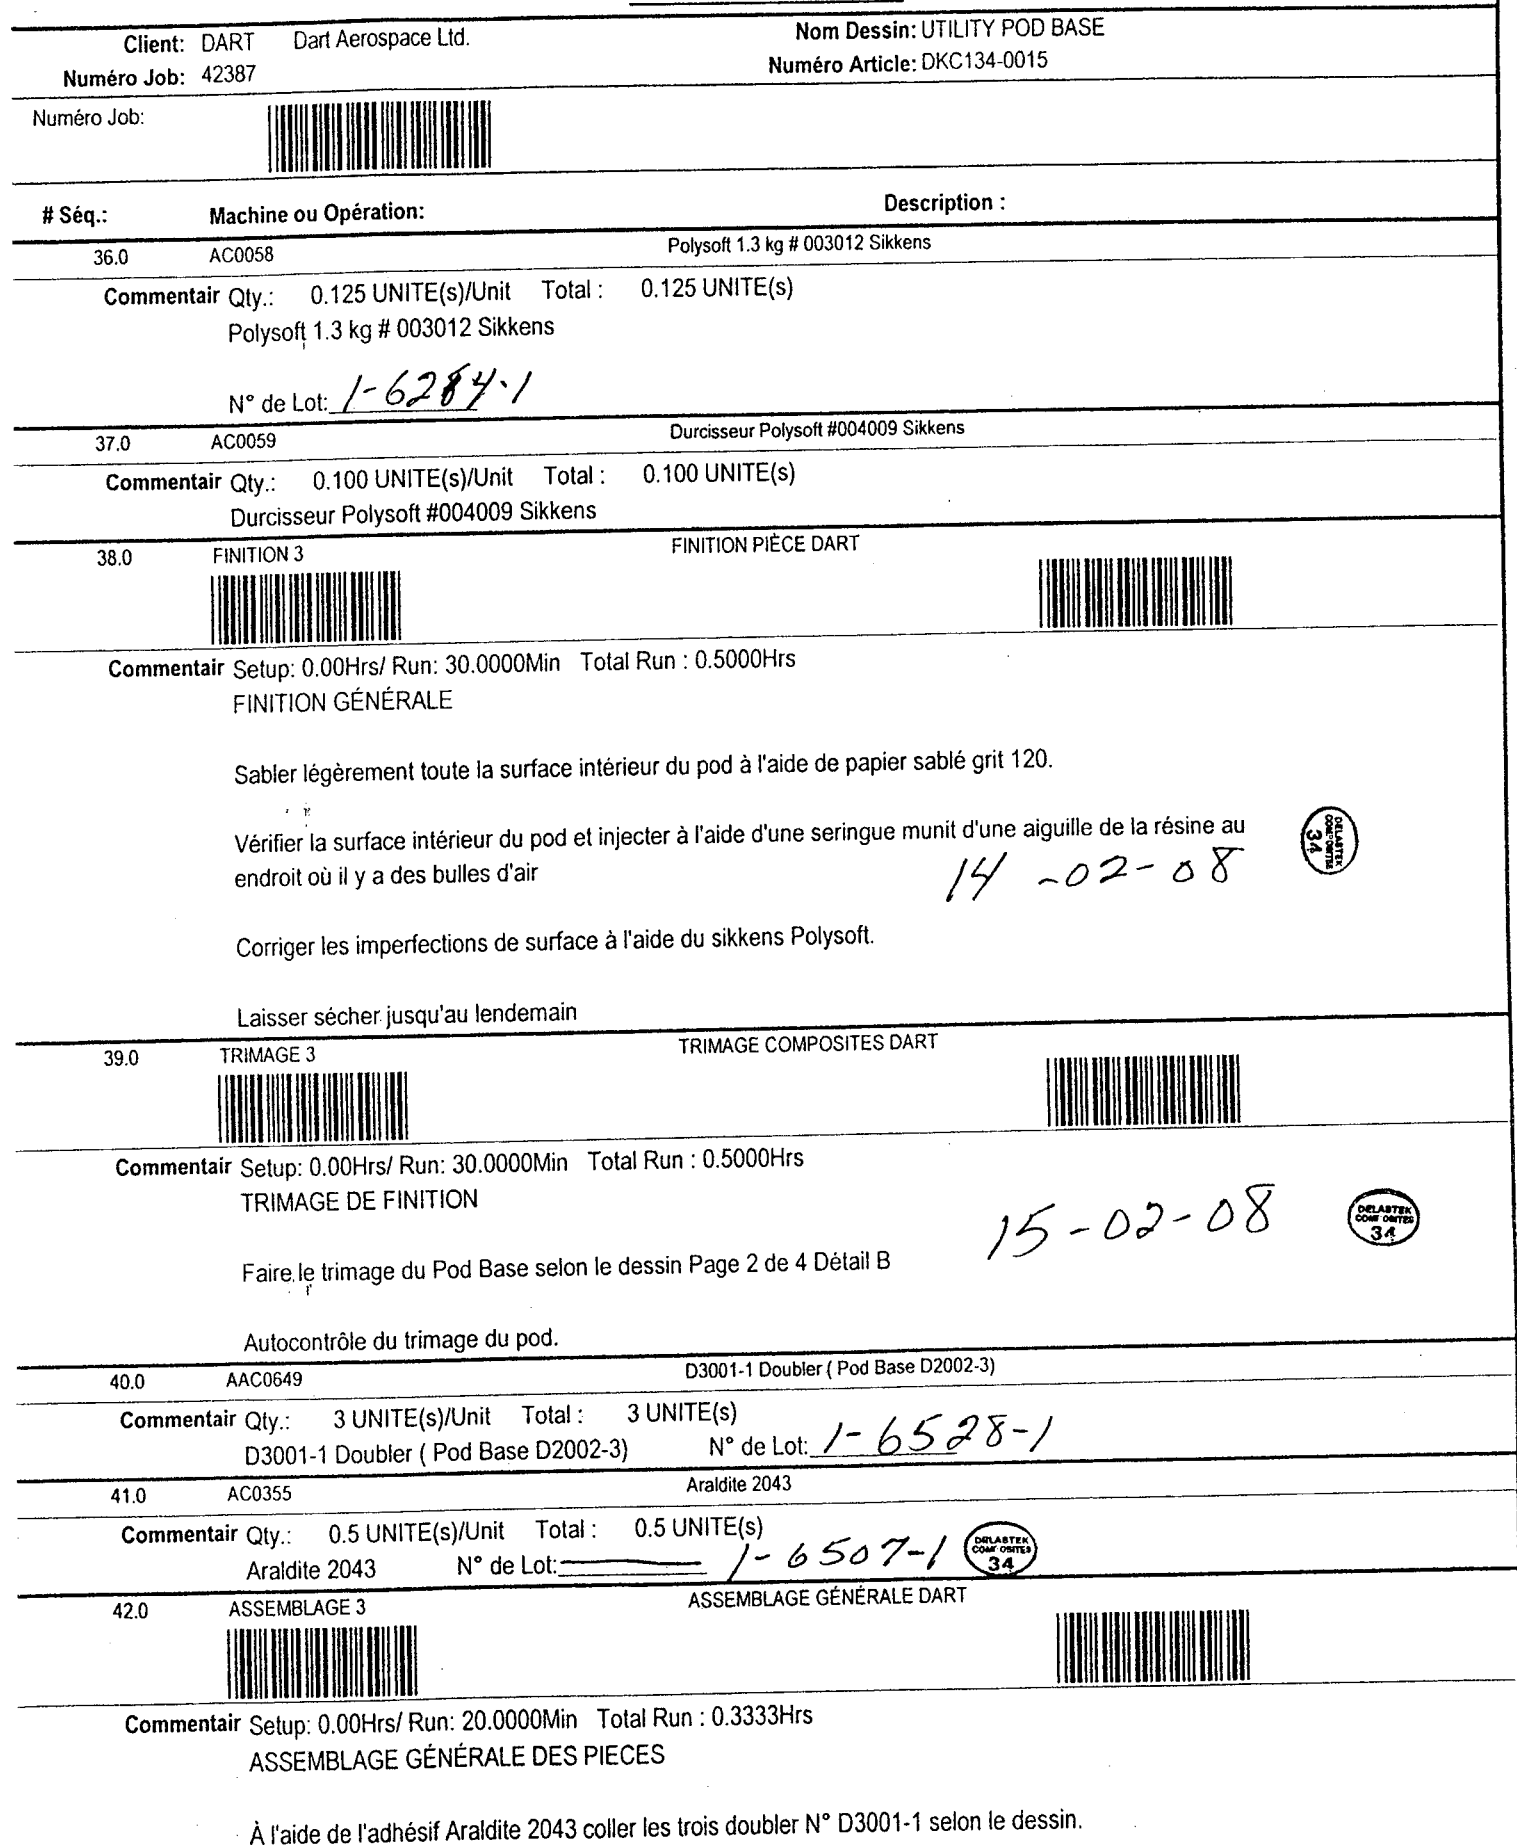 Client: DART Dart Aerospace Ltd. Nom Dessin: UTILITY POD BASE
Numéro Job: 42387 Numéro Article: DKC134-0015
Numéro Job:
# Séq.: Machine ou Opération: Description :
36.0 AC0058 Polysoft 1.3 kg # 003012 Sikkens
Commentair Qty.: 0.125 UNITE(s)/Unit Total : 0.125 UNITE(s)
Polysoft 1.3 kg # 003012 Sikkens
N° de Lot: 1-6284-1
37.0 AC0059 Durcisseur Polysoft #004009 Sikkens
Commentair Qty.: 0.100 UNITE(s)/Unit Total : 0.100 UNITE(s)
Durcisseur Polysoft #004009 Sikkens
38.0 FINITION 3 FINITION PIÈCE DART
Commentair Setup: 0.00Hrs/ Run: 30.0000Min Total Run : 0.5000Hrs
FINITION GÉNÉRALE
Sabler légèrement toute la surface intérieur du pod à l'aide de papier sablé grit 120.
Vérifier la surface intérieur du pod et injecter à l'aide d'une seringue munit d'une aiguille de la résine au
endroit où il y a des bulles d'air 14-02-08 DELASTEK COMPOSITES 34
Corriger les imperfections de surface à l'aide du sikkens Polysoft.
Laisser sécher jusqu'au lendemain
39.0 TRIMAGE 3 TRIMAGE COMPOSITES DART
Commentair Setup: 0.00Hrs/ Run: 30.0000Min Total Run : 0.5000Hrs
TRIMAGE DE FINITION
15-02-08 DELASTEK COMPOSITES 34
Faire le trimage du Pod Base selon le dessin Page 2 de 4 Détail B
Autocontrôle du trimage du pod.
40.0 AAC0649 D3001-1 Doubler ( Pod Base D2002-3)
Commentair Qty.: 3 UNITE(s)/Unit Total : 3 UNITE(s)
D3001-1 Doubler ( Pod Base D2002-3) N° de Lot: 1-6528-1
41.0 AC0355 Araldite 2043
Commentair Qty.: 0.5 UNITE(s)/Unit Total : 0.5 UNITE(s)
Araldite 2043 N° de Lot: 1-6507-1 DELASTEK COMPOSITES 34
42.0 ASSEMBLAGE 3 ASSEMBLAGE GÉNÉRALE DART
Commentair Setup: 0.00Hrs/ Run: 20.0000Min Total Run : 0.3333Hrs
ASSEMBLAGE GÉNÉRALE DES PIECES
À l'aide de l'adhésif Araldite 2043 coller les trois doubler N° D3001-1 selon le dessin.